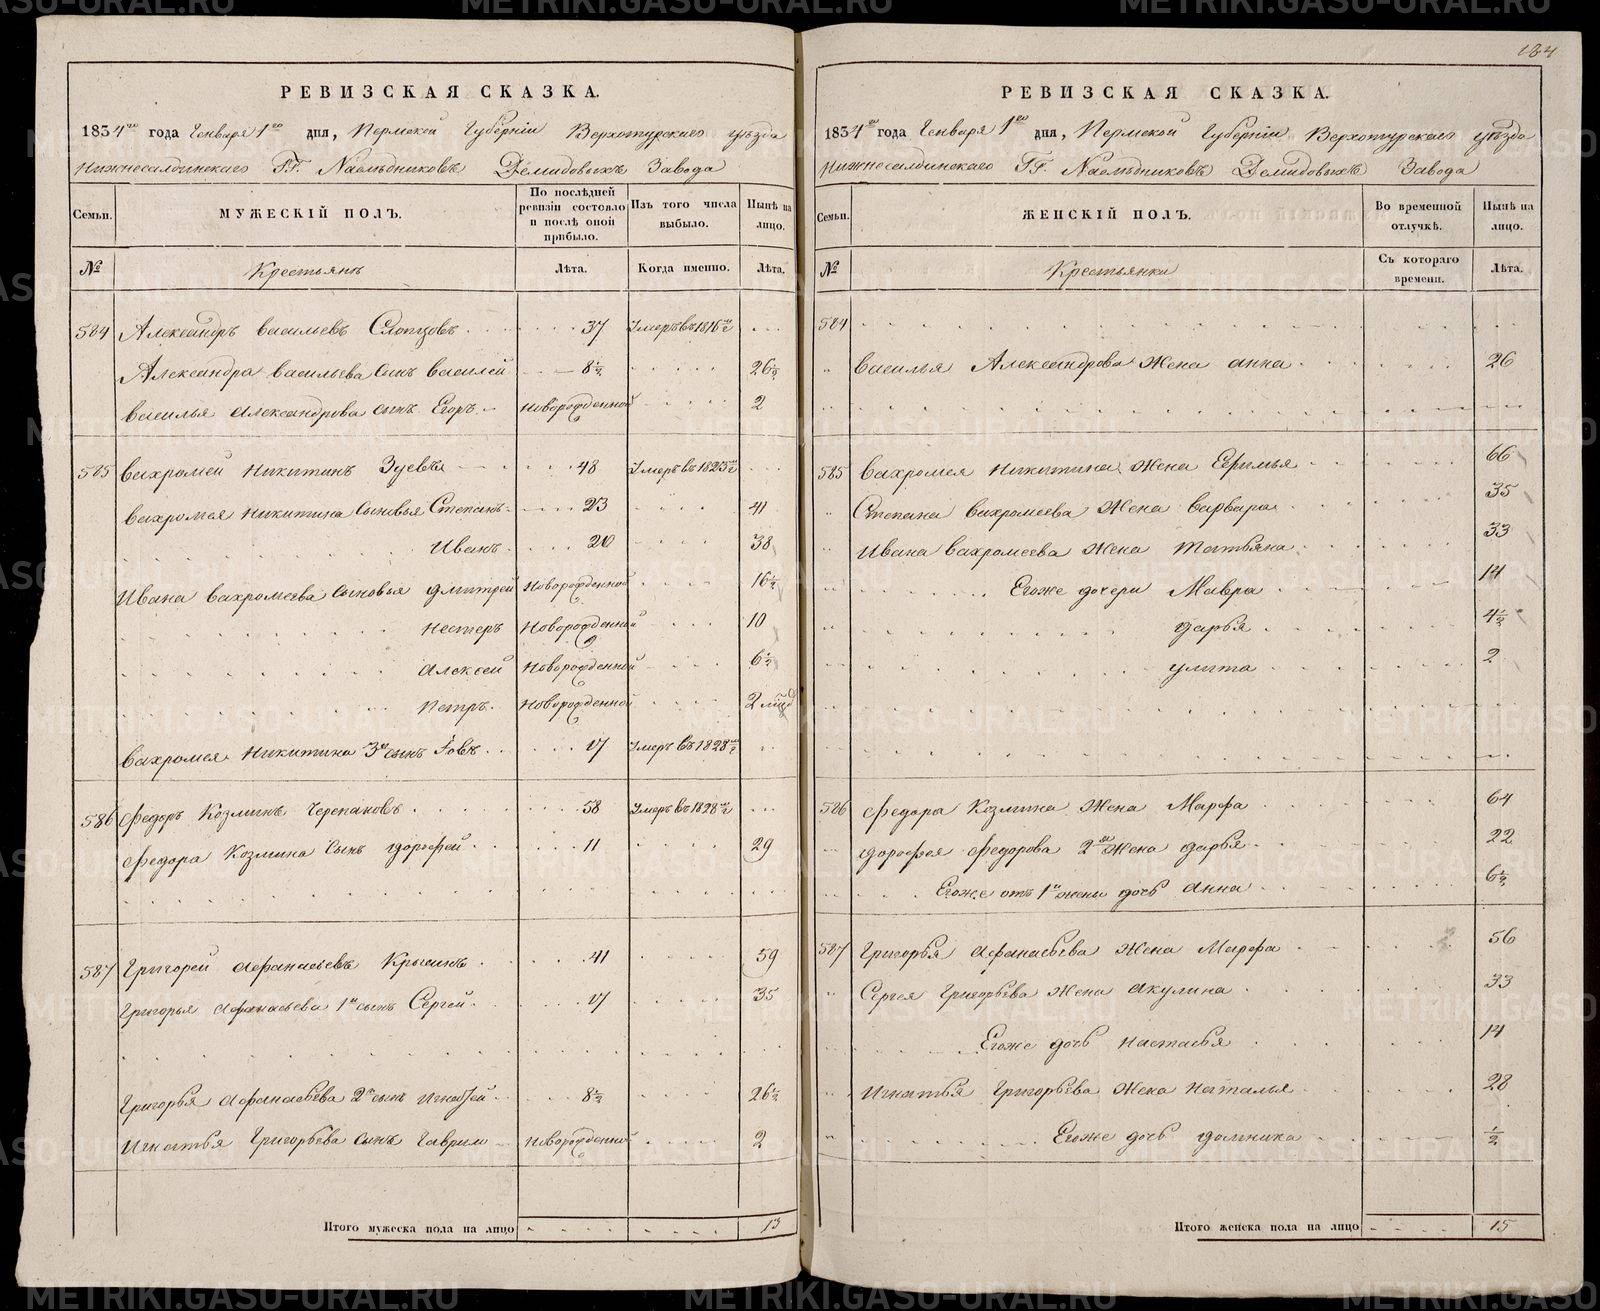 184
РЕВИЗСКАЯ СКАЗКА.
1834го года Генваря 1го дня, Пермской Губернiи Верхотурскаго уѣзда
Нижнесалдинскаго ГГ. Наслѣдниковъ Демидовыхъ Завода
Семьи. МУЖЕСКIЙ ПОЛЪ. По послѣдней ревизiи состояло и послѣ оной прибыло. Изъ того числа выбыло. Нынѣ на лицо.
№ Крестьянъ Лѣта. Когда именно. Лѣта.
584 Александръ Васильевъ Слопцовъ 37 Умеръ въ 1816мъ г.
Александра Васильева сынъ Василей 8½ 26½
Василья Александрова сынъ Егоръ Новорожденной 2
585 Вахромей Никитинъ Зуевъ 48 Умеръ въ 1825мъ г.
Вахромея Никитина сыновья Степанъ 23 41
Иванъ 20 38
Ивана Вахромеева сыновья Дмитрей Новорожденной 16½
Нестеръ Новорожденной 10
Алексей Новорожденной 6½
Петръ Новорожденной 2
Вахромея Никитина 3й сынъ Іовъ 17 Умеръ въ 1828мъ г.
586 Федоръ Козминъ Черепановъ 58 Умеръ въ 1828мъ г.
Федора Козмина сынъ Дорофей 11 29
587 Григорей Афанасьевъ Крысинъ 41 59
Григорья Афанасьева 1й сынъ Сергей 17 35
Григорья Афанасьева 2й сынъ Игнатей 8½ 26½
Игнатья Григорьева сынъ Гаврило Новорожденной 2
Итого мужеска пола на лицо 13
РЕВИЗСКАЯ СКАЗКА.
1834го года Генваря 1го дня, Пермской Губернiи Верхотурскаго уѣзда
Нижнесалдинскаго ГГ. Наслѣдниковъ Демидовыхъ Завода
Семьи. ЖЕНСКIЙ ПОЛЪ. Во временной отлучкѣ. Нынѣ на лицо.
№ Крестьянки Съ котораго времени. Лѣта.
584
Василья Александрова жена Анна 26
585 Вахромея Никитина жена Ефимья 66
Степана Вахромеева жена Варвара 35
Ивана Вахромеева жена Татьяна 33
Егоже дочери Мавра 14
Дарья 4½
Улита 2
586 Федора Козмина жена Марфа 64
Дорофея Федорова 2ая жена Дарья 22
Егоже отъ 1й жены дочь Анна 6½
587 Григорья Афанасьева жена Марфа 56
Сергея Григорьева жена Акулина 33
Егоже дочь Настасья 14
Игнатья Григорьева жена Наталья 28
Егоже дочь Домника ½
Итого женска пола на лицо 15
METRIKI.GASO-URAL.RU